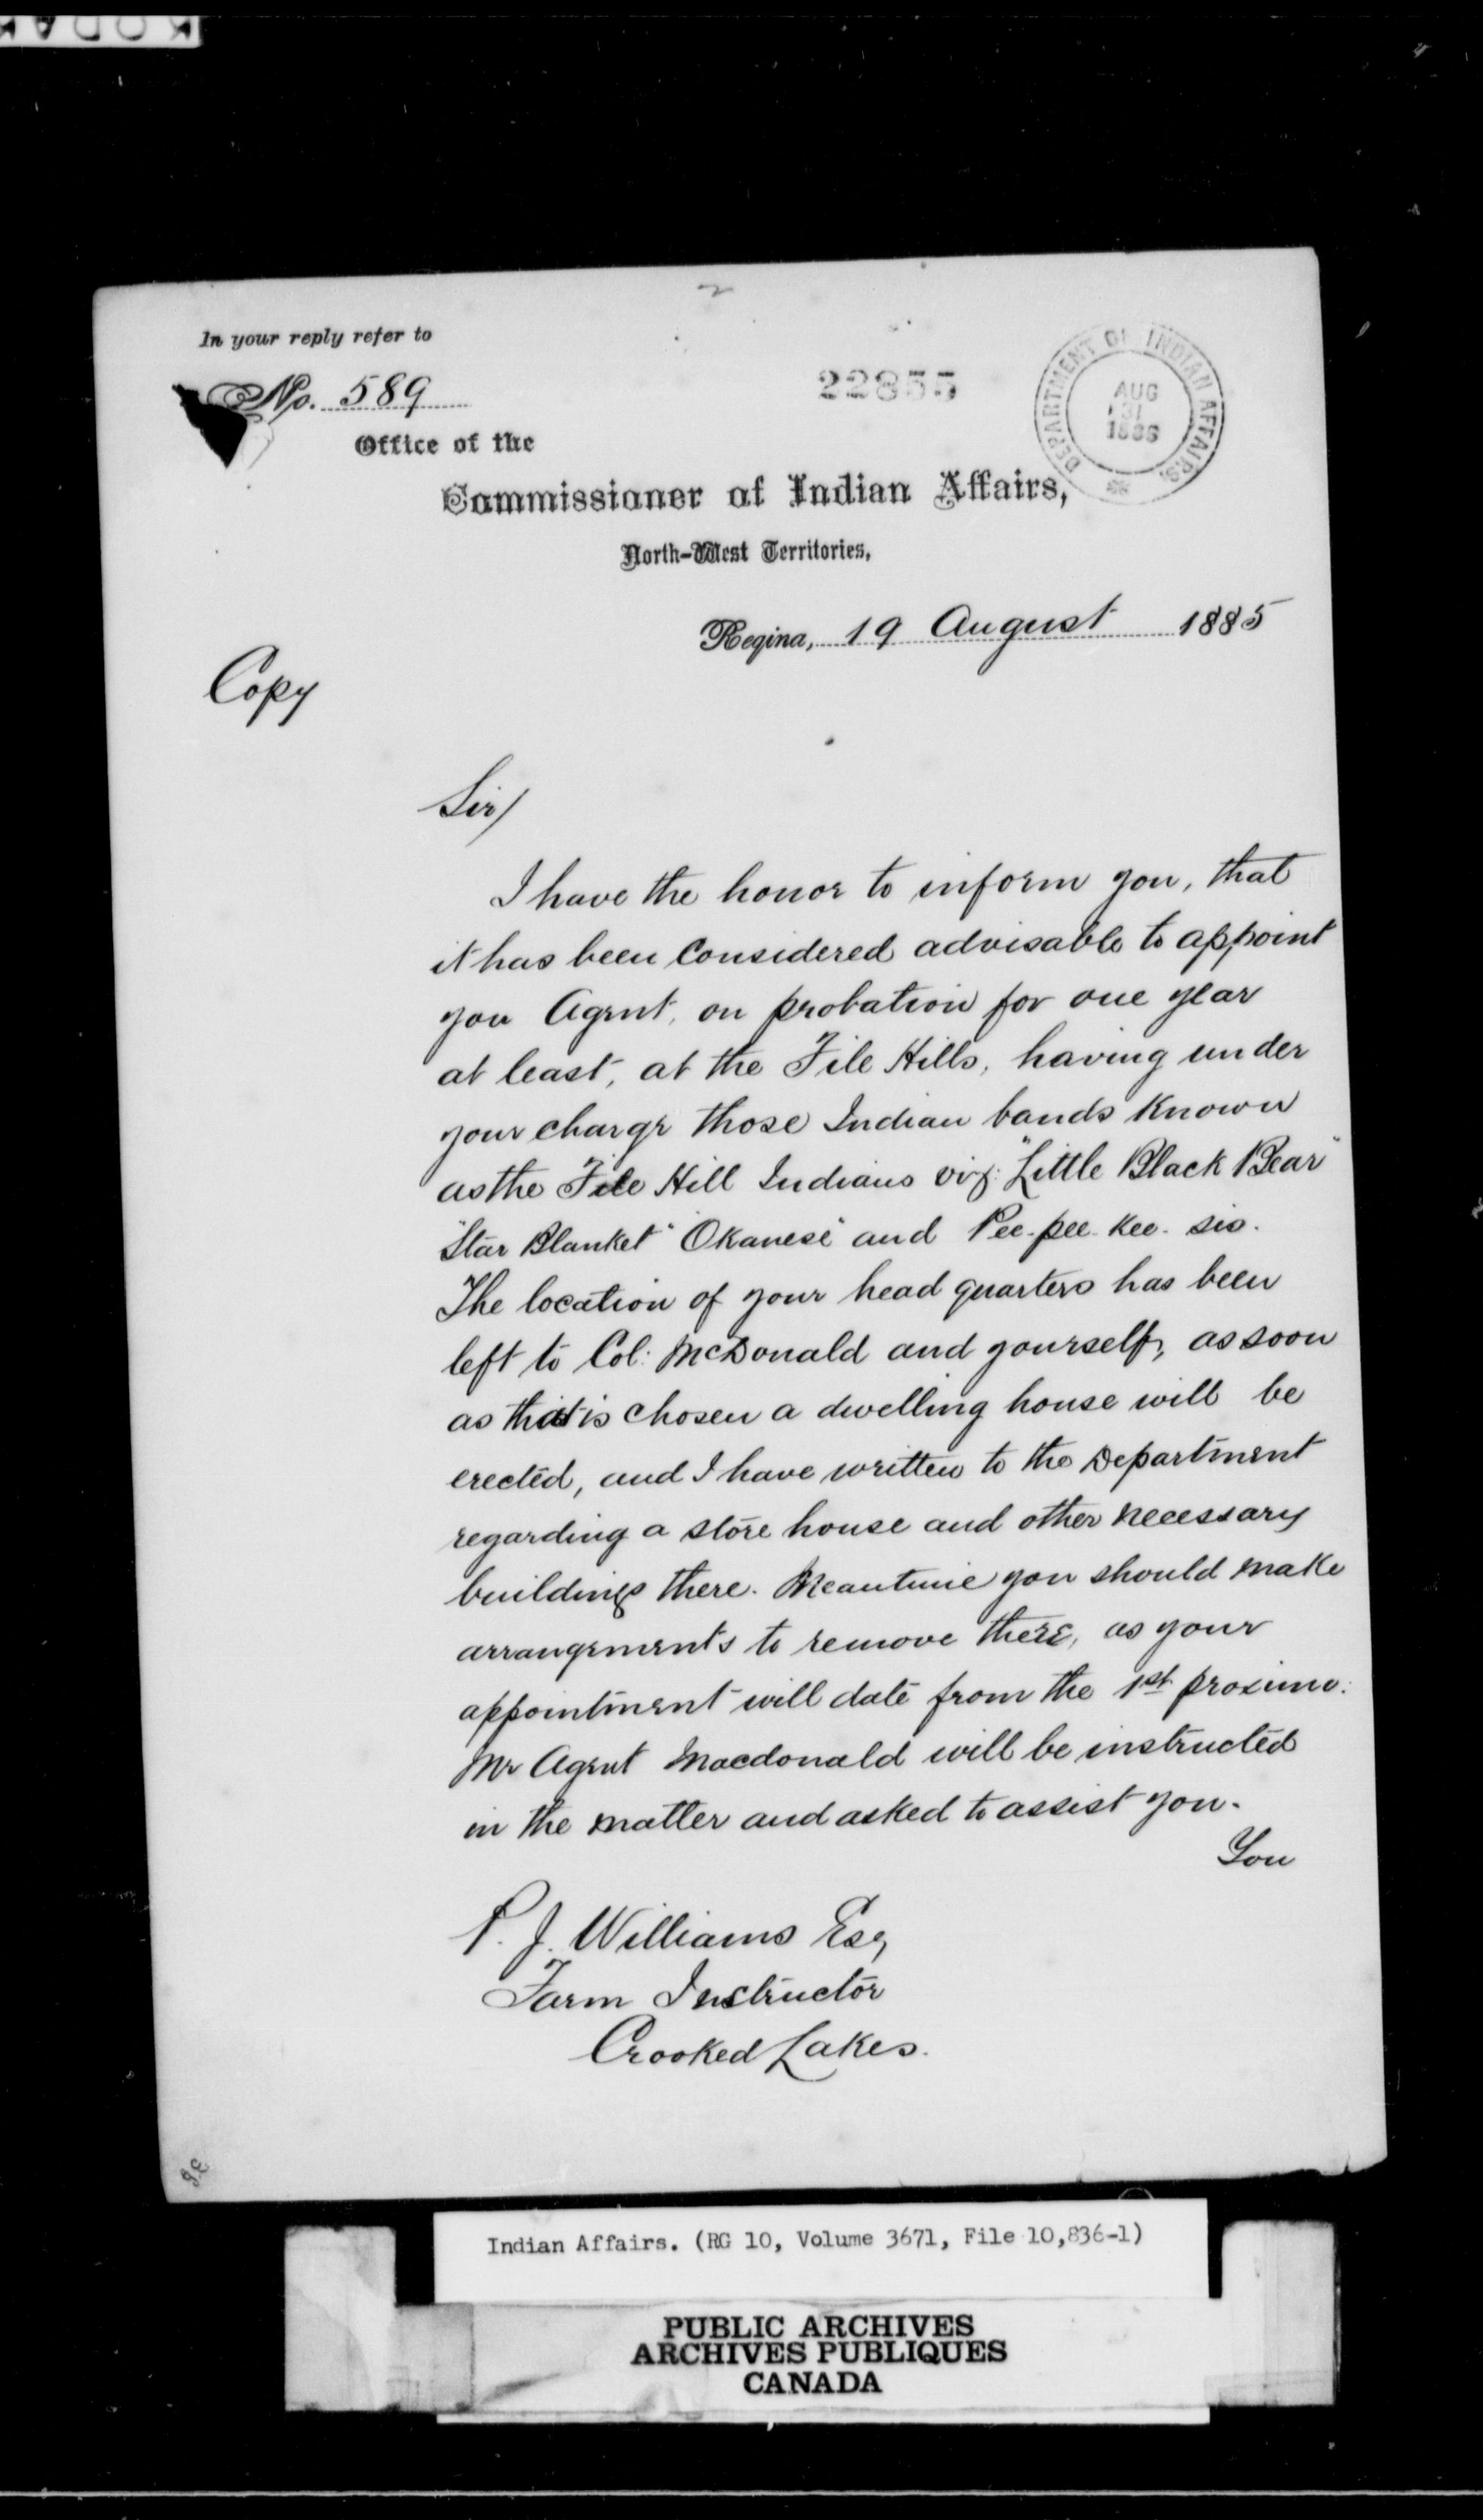 KODAK
2
In your reply refer to
No. 589
22855
DEPARTMENT OF INDIAN AFFAIRS.
AUG
31
Office of the
Commissioner of Indian Affairs,
North-West Territories,
Regina, 19 August 1885
Copy
Sir/
I have the honor to inform you, that
it has been Considered advisable to appoint
you Agent, on probation for one year
at least, at the File Hills, having under
your charge those Indian bands Known
as the File Hill Indians viz: "Little Black Bear"
"Star Blanket" "Okanese" and Pee-pee-Kee-sis.
The location of your head quarters has been
left to Col: McDonald and yourself, as soon
as that is chosen a dwelling house will be
erected, and I have written to the Department
regarding a store house and other necessary
buildings there. Meantime you should make
arrangements to remove there, as your
appointment will date from the 1st proximo.
Mr Agent Macdonald will be instructed
in the matter and asked to assist you.
You
P. J. Williams Esq
Farm Instructor
Crooked Lakes.
Indian Affairs. (RG 10, Volume 3671, File 10,836-1)
PUBLIC ARCHIVES
ARCHIVES PUBLIQUES
CANADA